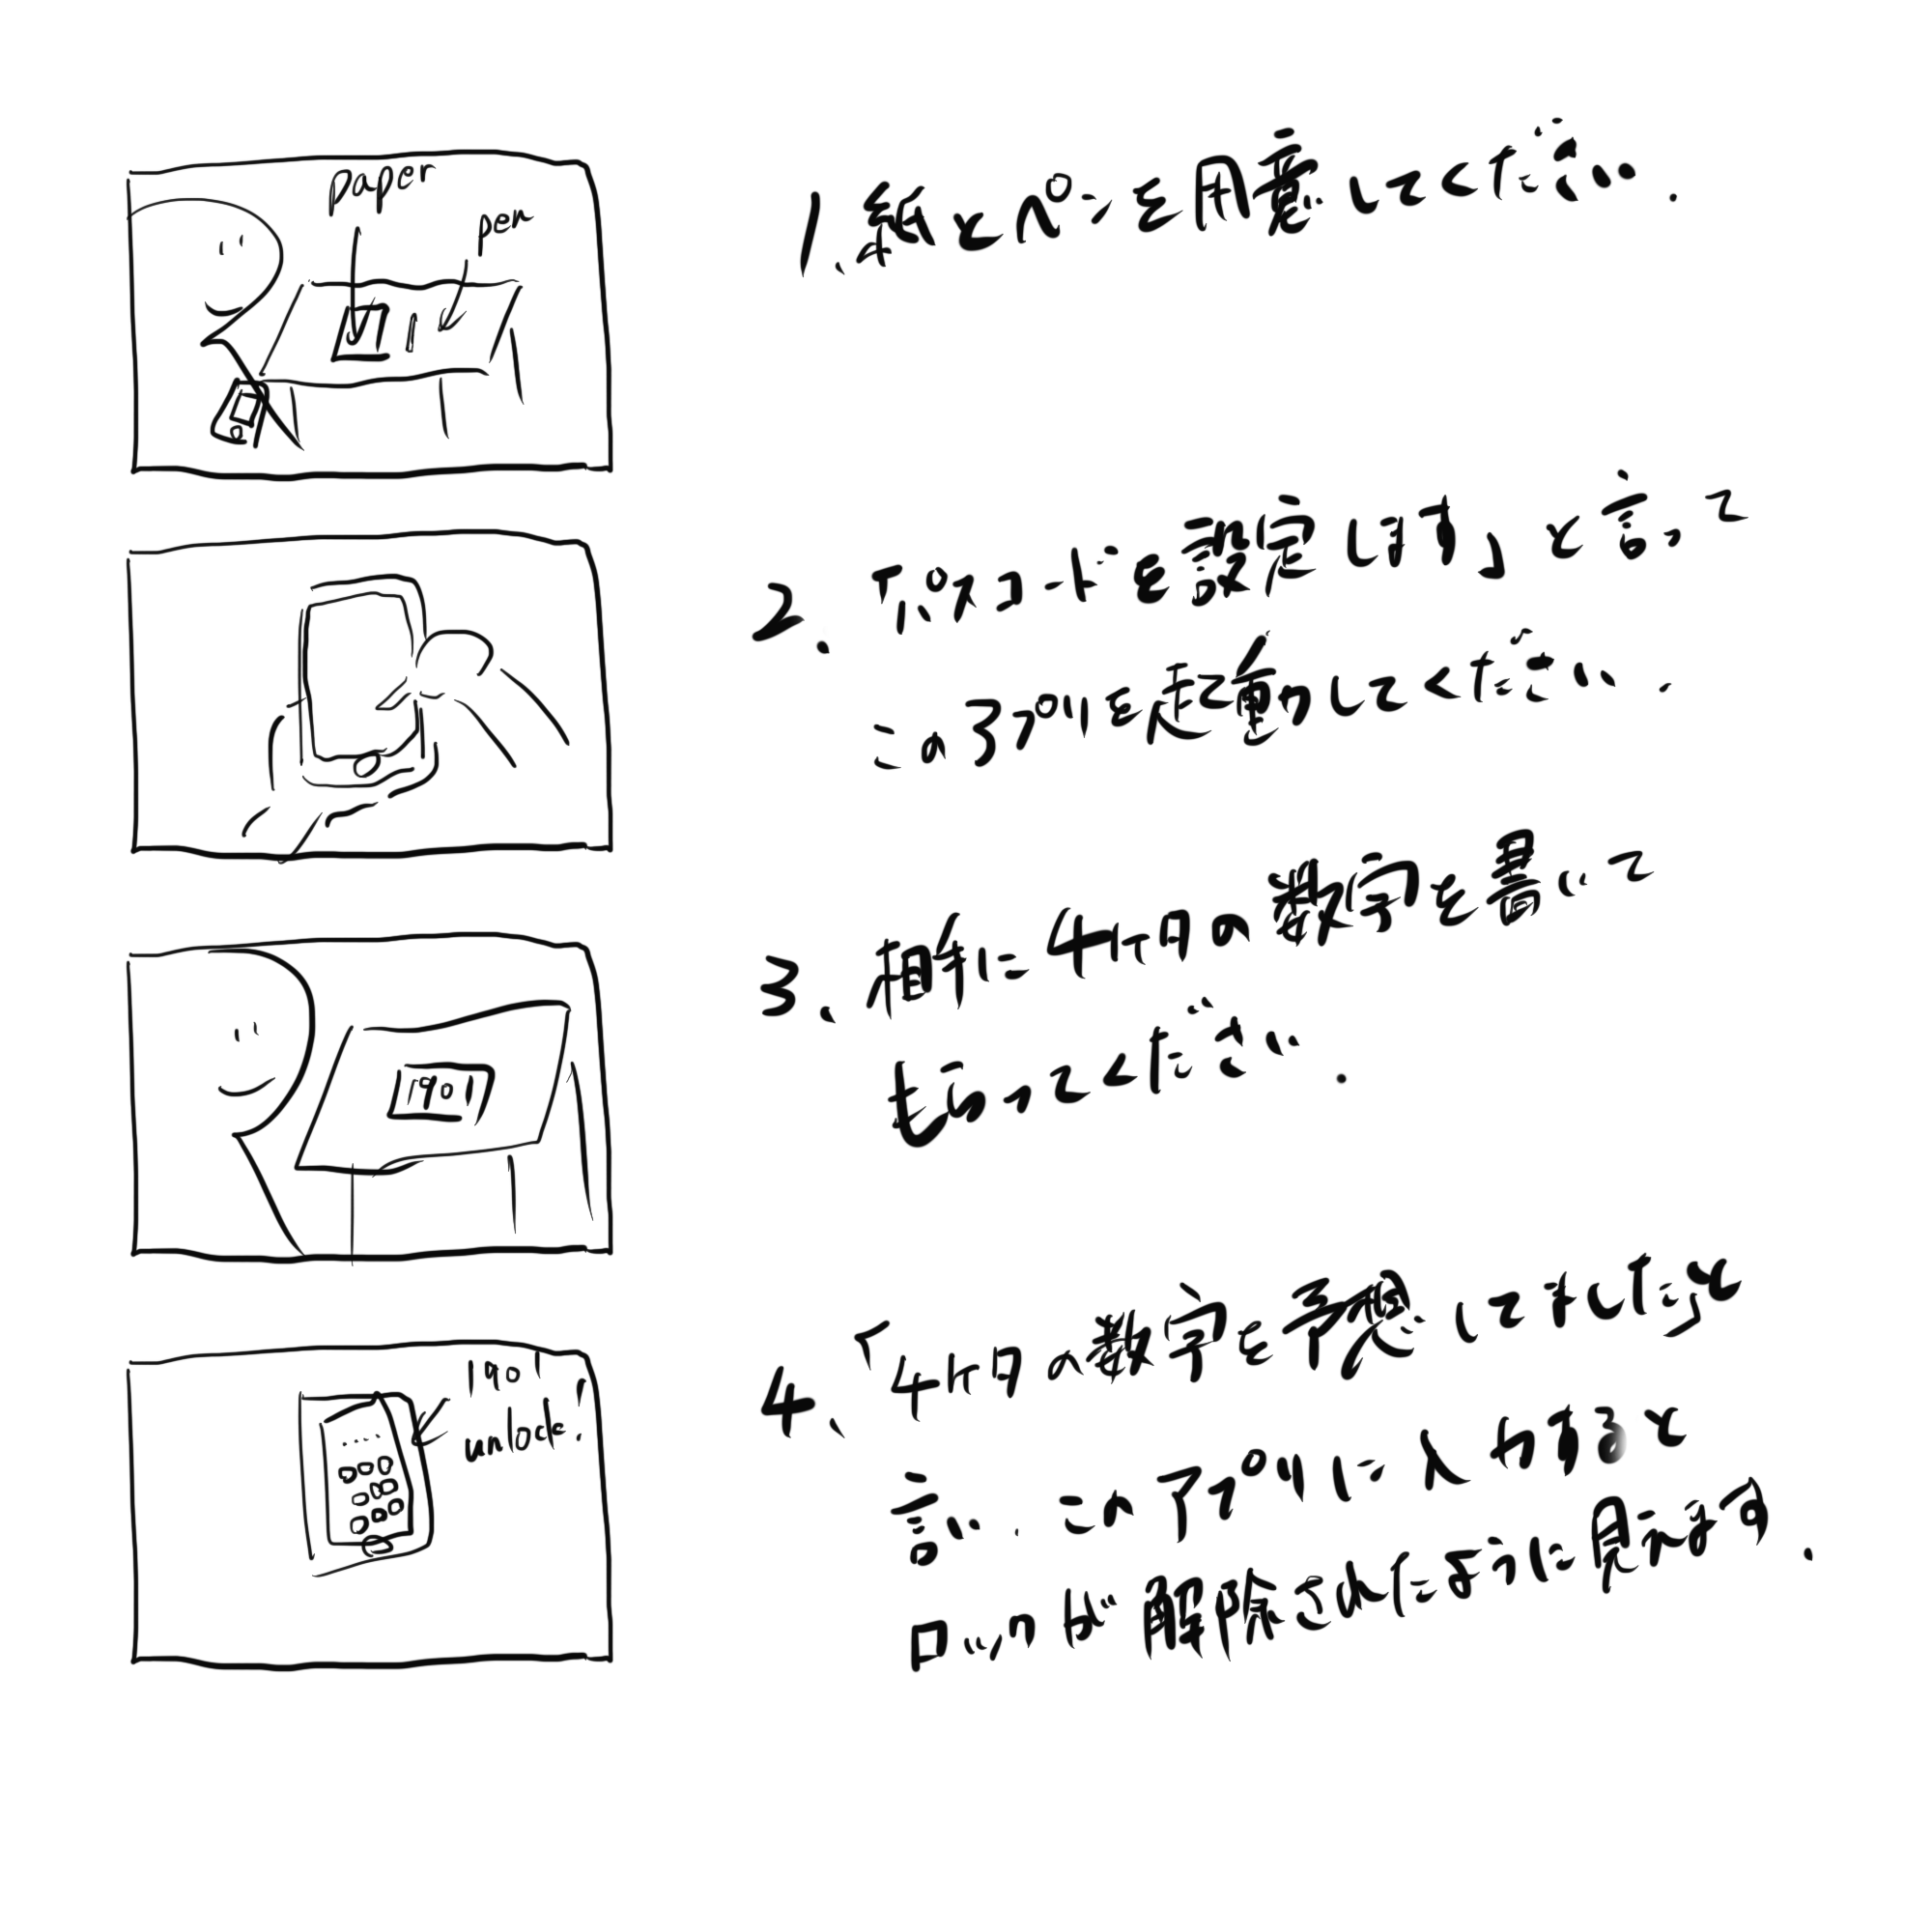 paper
pen
1. 紙とペンを用意してください.
2. 「パスコードを設定します」と言って
このアプリを起動してください.
1901
3. 相手に4ケタの数字を書いて
もらってください.
1901
unlock!
4. 「4ケタの数字を予想してました」と
言い. このアプリに入力すると
ロックが解除されたように見えます.